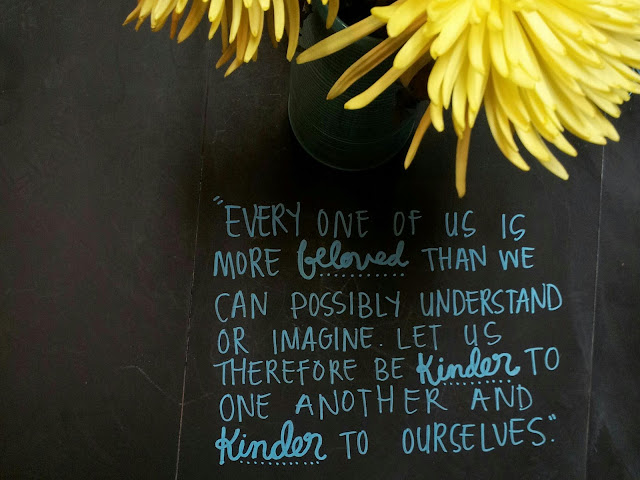 "EVERY ONE OF US IS
MORE beloved THAN WE
CAN POSSIBLY UNDERSTAND
OR IMAGINE. LET US
THEREFORE BE Kinder TO
ONE ANOTHER AND
Kinder TO OURSELVES."